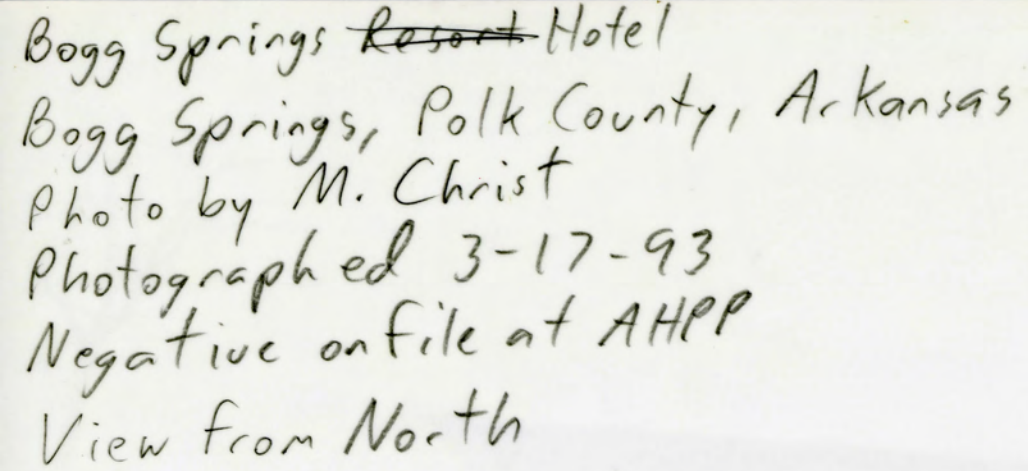 Bogg Springs Resort Hotel
Bogg Springs, Polk County, Arkansas
Photo by M. Christ
Photographed 3-17-93
Negative on file at AHPP
View from North